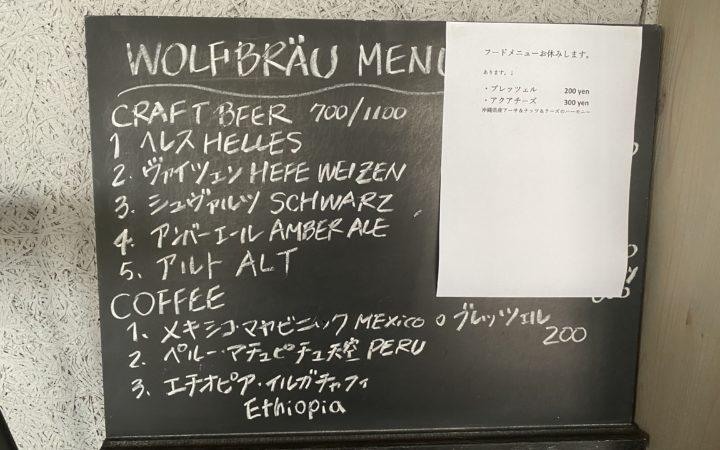 WOLFBRÄU MENU
CRAFT BEER 700/1100
1 ヘレス HELLES
2. ヴァイツェン HEFE WEIZEN
3. シュヴァルツ SCHWARZ
4. アンバーエール AMBER ALE
5. アルト ALT
COFFEE
1. メキシコ・マヤビニック MEXICO
2. ペルー・マチュピチュ天空 PERU
3. エチオピア・イルガチャフィ
Ethiopia
○ ブレッツェル
200
フードメニューお休みします。
あります。↓
・ブレッツェル 200 yen
・アクアチーズ 300 yen
沖縄県産アーサ&ナッツ&チーズのハーモニー